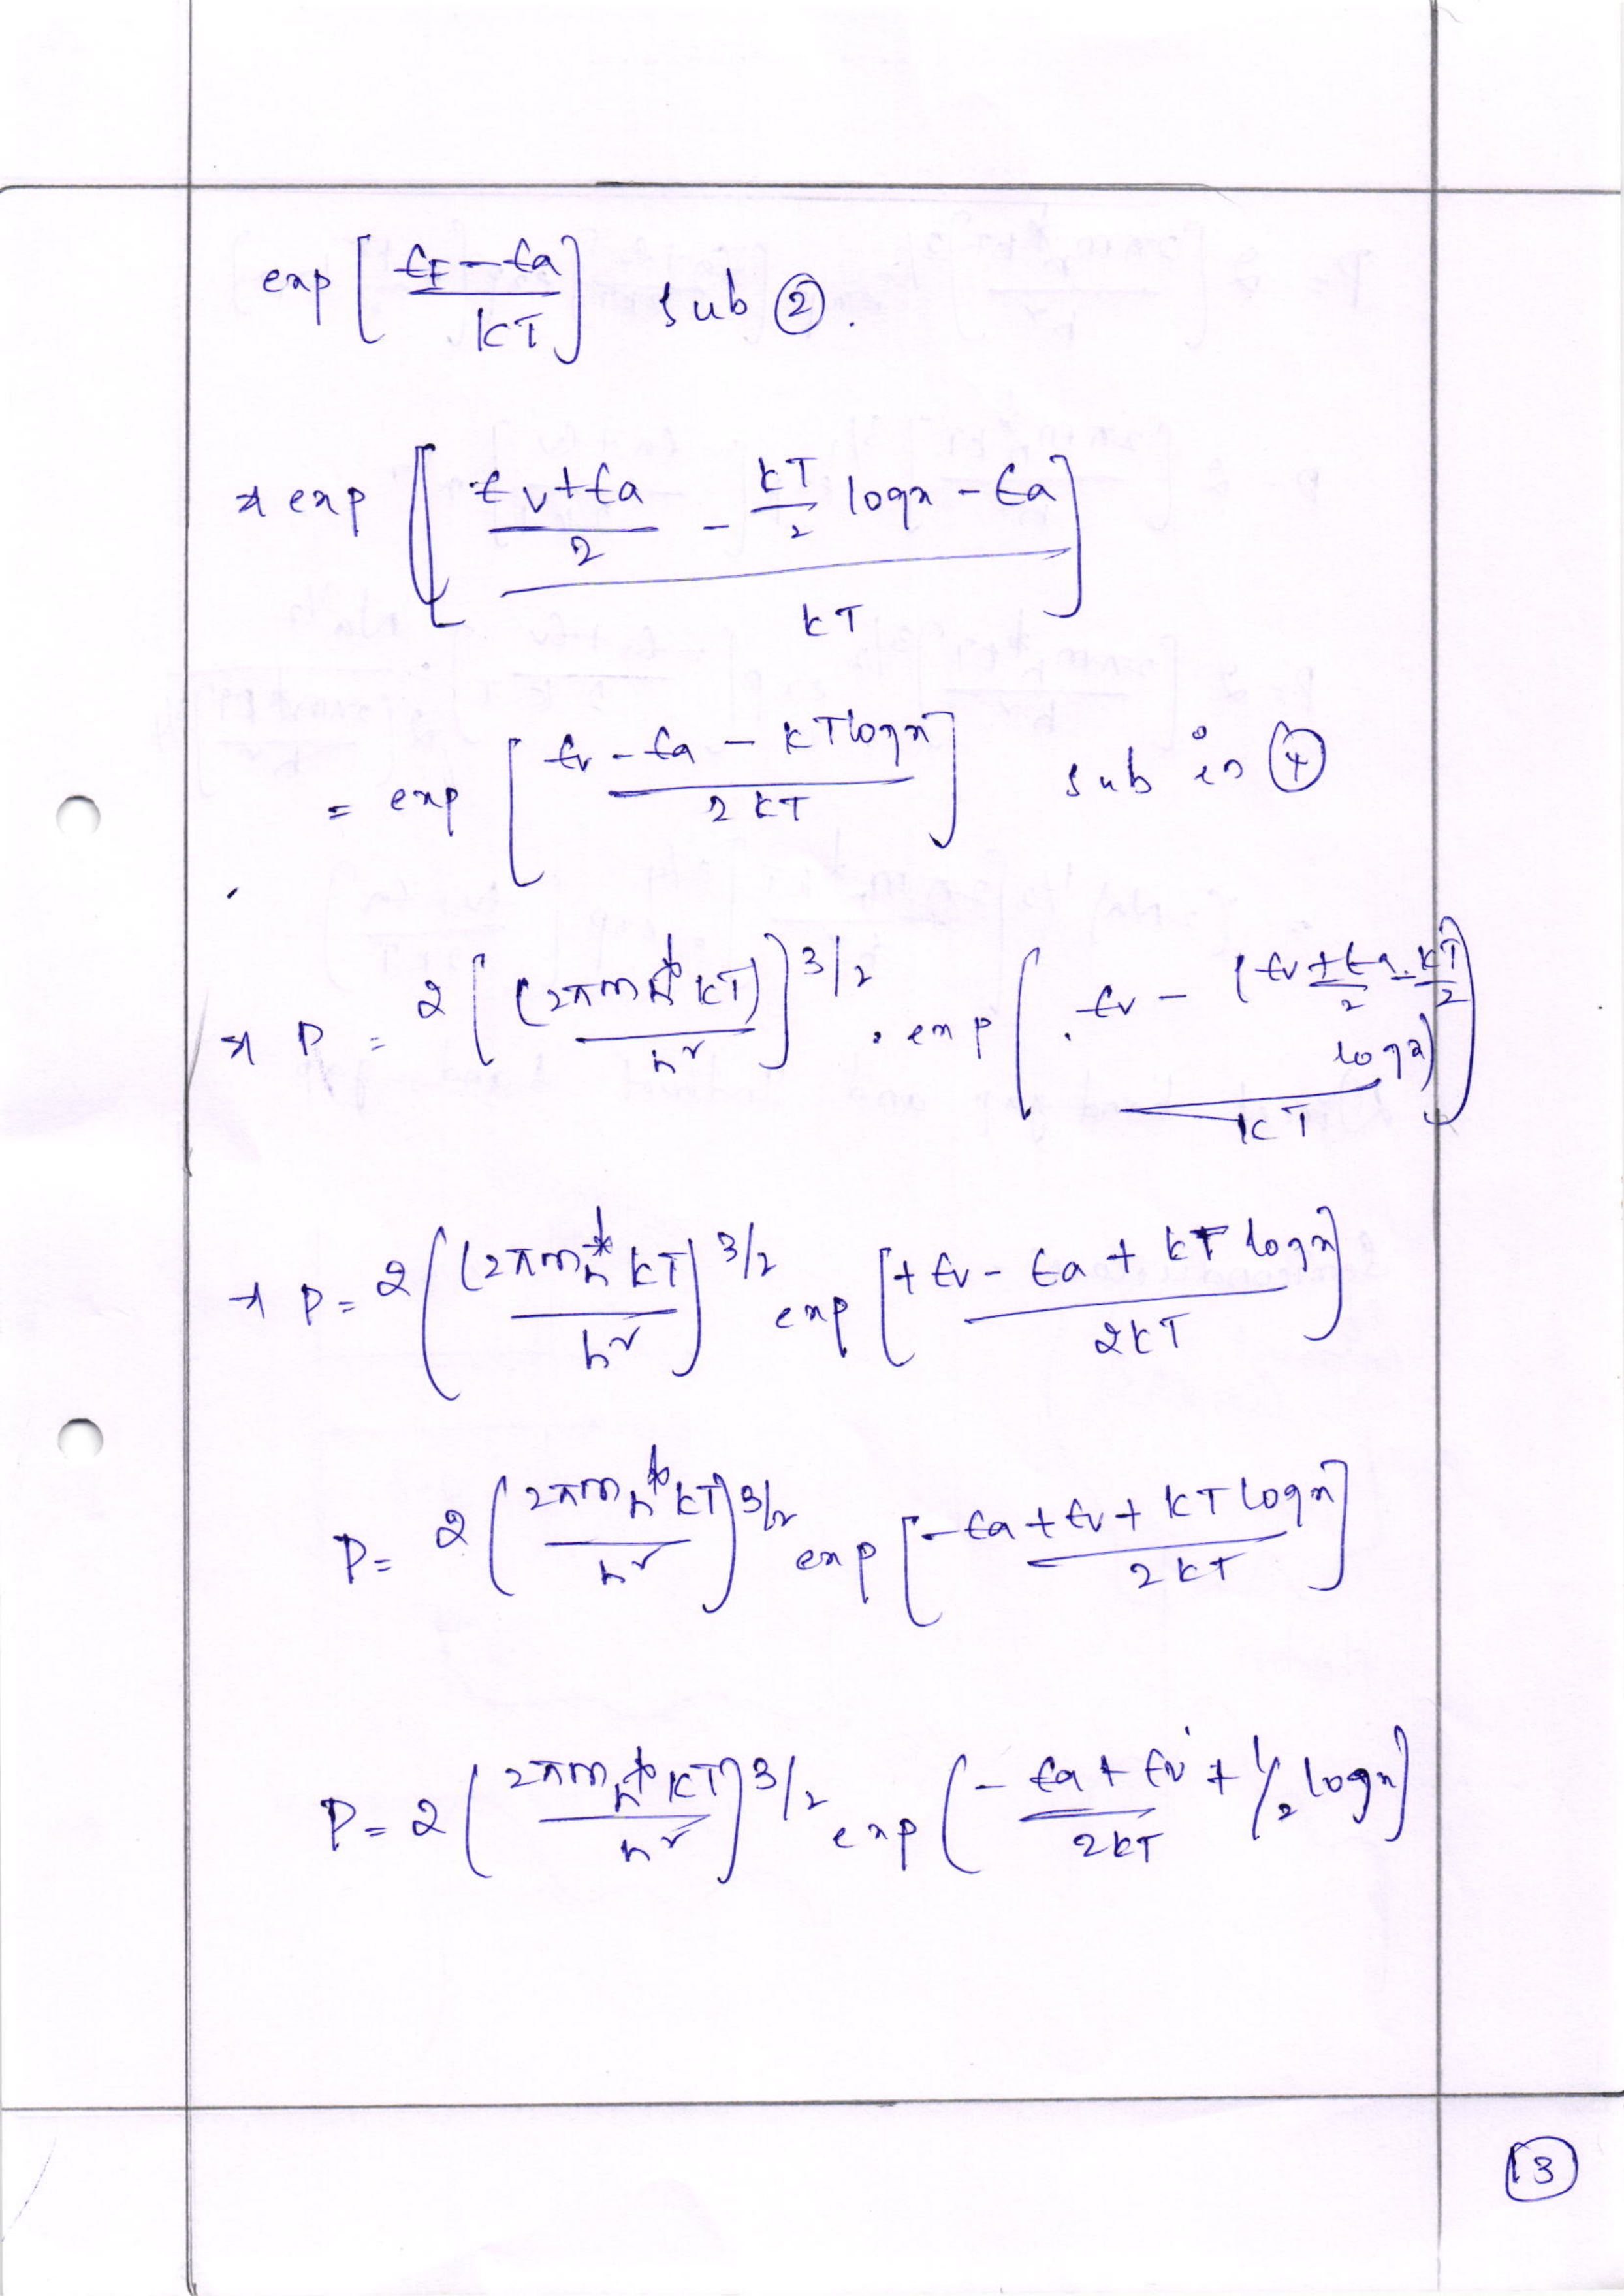 exp [ (E_F - E_a) / KT ] sub ②.
⇒ exp [ ( (E_v + E_a)/2 - (KT/2) log x - E_a ) / KT ]
= exp [ (E_v - E_a - KT log x) / 2KT ] sub in ④
⇒ P = 2 [ (2πm_h* KT) / h² ]^3/2 . exp ( ( E_v - ( (E_v + E_a)/2 - (KT/2) log x ) ) / KT )
⇒ P = 2 ( (2πm_h* KT) / h² )^3/2 exp [ (+ E_v - E_a + KT log x) / 2KT ]
P = 2 ( 2πm_h* KT / h² )^3/2 exp [ (- E_a + E_v + KT log x) / 2KT ]
P = 2 ( 2πm_h* KT / h² )^3/2 exp ( (- E_a + E_v) / 2KT + 1/2 log x )
13